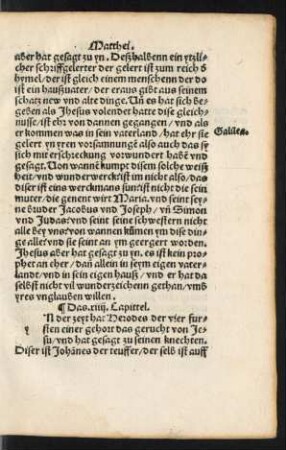 Matthei.
aber hat gesagt zu yn. Deßhalbenn ein ytzli-
cher schrifftgelerter der gelert ist zum reich d
hymel/der ist gleich einem menschenn der do
ist ein haußuater/der eraus gibt aus seinem
schatz new vnd alte dinge. Vñ es hat sich be-
geben als Jhesus volendt hatte dise gleich-
nusse/ist ehr von dannen gegangen/vnd als
er kommen was in sein vaterland/hat ehr sie
gelert yn yren vorsamnungē also auch das sy
sich mit erschreckung vorwundert habē vnd
gesagt. Von wannē kumpt disem solche weiß
heit/vnd wunderwerck/ist im nicht also/das
diser ist eins werckmans sun/ist nicht die sein
muter/die genent wirt Maria. vnd seint sey
ne bruder Jacobus vnd Joseph/vñ Simon
vnd Judas/vnd seint seine schwestern nicht
alle bey vns/von wannen kūmen ym dise din-
ge alle/vnd sie seint an ym geergert worden.
Jhesus aber hat gesagt zu yn. es ist kein pro-
phet an eher/dan allein in seym eigen vater-
landt/vnd in sein eigen hauß/vnd er hat da
selbst nicht vil wunderzeichenn gethan/vmb
yres vnglaubens willen.
Galilea
¶ Das. xiiij. Capittel.
IN der zeyt hat Herodes der vier fur-
sten einer gehort das gerucht von Je-
su/vnd hat gesagt zu seinen knechten.
Diser ist Johānes der teuffer/der selb ist auff